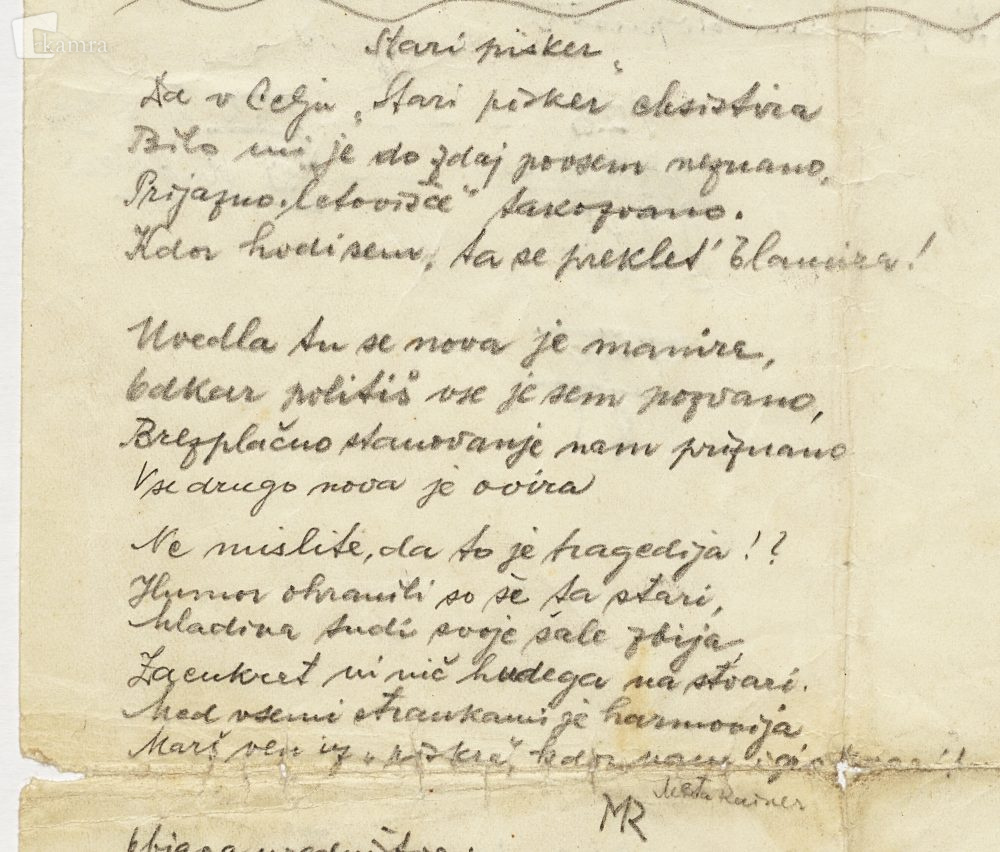 kamra
Stari pisker"
Da v Celju „Stari pisker eksistira
Bilo mi je do zdaj povsem neznano,
Prijazno „letovišče" takozvano.
Kdor hodi sem, ta se preklet' blamira!
Uvedla tu se nova je manira,
Odkar politiš vse je sem pozvano,
Brezplačno stanovanje nam priznano
Vse drugo nova je ovira
Ne mislite, da to je tragedija!?
Humor ohranili so še ta stari,
Mladina tudi svoje šale zbija,
Zaenkrat ni nič hudega na stvari.
Med vsemi strankami je harmonija
Marš ven iz „piskra", kdor nam !!
Meta Rainer
MR